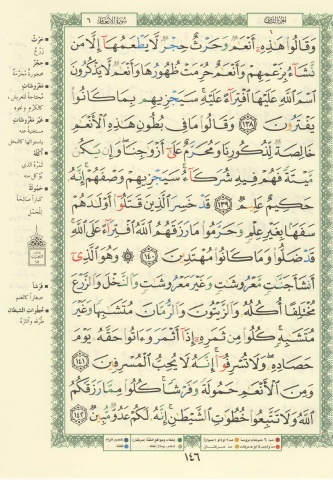 سورة الأنعام ٦
الجزء الثامن
وَقَالُوا۟ هَـٰذِهِۦٓ أَنْعَـٰمٌ وَحَرْثٌ حِجْرٌ لَّا يَطْعَمُهَآ إِلَّا مَن
نَّشَآءُ بِزَعْمِهِمْ وَأَنْعَـٰمٌ حُرِّمَتْ ظُهُورُهَا وَأَنْعَـٰمٌ لَّا يَذْكُرُونَ
ٱسْمَ ٱللَّهِ عَلَيْهَا ٱفْتِرَآءً عَلَيْهِ ۚ سَيَجْزِيهِم بِمَا كَانُوا۟
يَفْتَرُونَ ١٣٨ وَقَالُوا۟ مَا فِى بُطُونِ هَـٰذِهِ ٱلْأَنْعَـٰمِ
خَالِصَةٌ لِّذُكُورِنَا وَمُحَرَّمٌ عَلَىٰٓ أَزْوَٰجِنَا ۖ وَإِن يَكُن
مَّيْتَةً فَهُمْ فِيهِ شُرَكَآءُ ۚ سَيَجْزِيهِمْ وَصْفَهُمْ ۚ إِنَّهُۥ
حَكِيمٌ عَلِيمٌ ١٣٩ قَدْ خَسِرَ ٱلَّذِينَ قَتَلُوٓا۟ أَوْلَـٰدَهُمْ
سَفَهًۢا بِغَيْرِ عِلْمٍ وَحَرَّمُوا۟ مَا رَزَقَهُمُ ٱللَّهُ ٱفْتِرَآءً عَلَى ٱللَّهِ ۚ
قَدْ ضَلُّوا۟ وَمَا كَانُوا۟ مُهْتَدِينَ ١٤٠ ۞ وَهُوَ ٱلَّذِىٓ
أَنشَأَ جَنَّـٰتٍ مَّعْرُوشَـٰتٍ وَغَيْرَ مَعْرُوشَـٰتٍ وَٱلنَّخْلَ وَٱلزَّرْعَ
مُخْتَلِفًا أُكُلُهُۥ وَٱلزَّيْتُونَ وَٱلرُّمَّانَ مُتَشَـٰبِهًا وَغَيْرَ
مُتَشَـٰبِهٍ ۚ كُلُوا۟ مِن ثَمَرِهِۦٓ إِذَآ أَثْمَرَ وَءَاتُوا۟ حَقَّهُۥ يَوْمَ
حَصَادِهِۦ ۖ وَلَا تُسْرِفُوٓا۟ ۚ إِنَّهُۥ لَا يُحِبُّ ٱلْمُسْرِفِينَ ١٤١
وَمِنَ ٱلْأَنْعَـٰمِ حَمُولَةً وَفَرْشًا ۚ كُلُوا۟ مِمَّا رَزَقَكُمُ
ٱللَّهُ وَلَا تَتَّبِعُوا۟ خُطُوَٰتِ ٱلشَّيْطَـٰنِ ۚ إِنَّهُۥ لَكُمْ عَدُوٌّ مُّبِينٌ ١٤٢
حرث
زرع
حجر
محجورة محرّمة
معروشات
غير معروشات
أكله
حمولة
فرشا
خطوات الشيطان
١٤٦